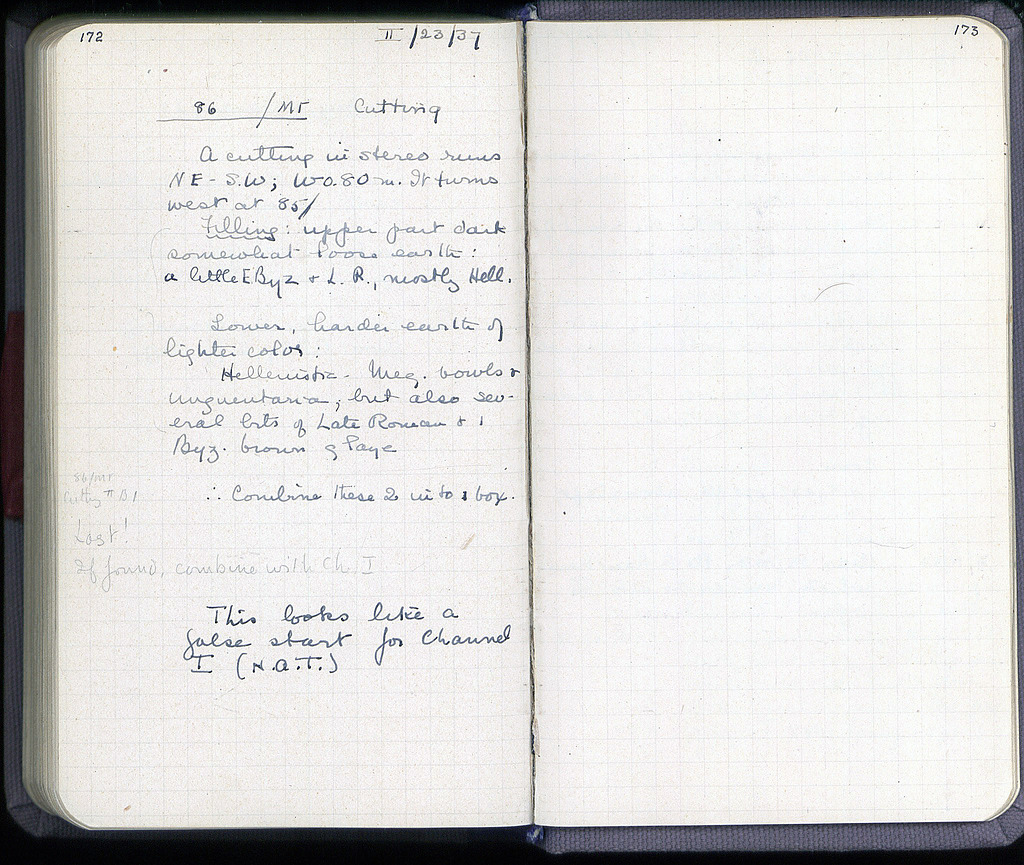 172
II/23/37
86 /MT Cutting
A cutting in stereo runs
NE-S.W; W 0.80 m. It turns
west at 85/
Filling: upper part dark
somewhat loose earth:
a little E Byz + L. R., mostly Hell.
Lower, harder earth of
lighter color:
Hellenistic - Meg. bowls +
unguentaria, but also sev-
eral bits of Late Roman + 1
Byz. brown glaze
86/MT
∴ Combine these 2 into 1 box.
Lost!
If found, combine with Ch. I
This looks like a
false start for Channel
I (H.A.T.)
173